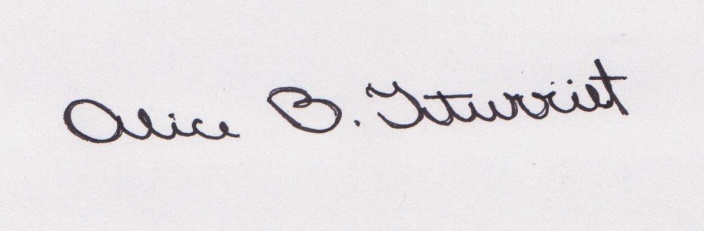 Alice B. Iturriet